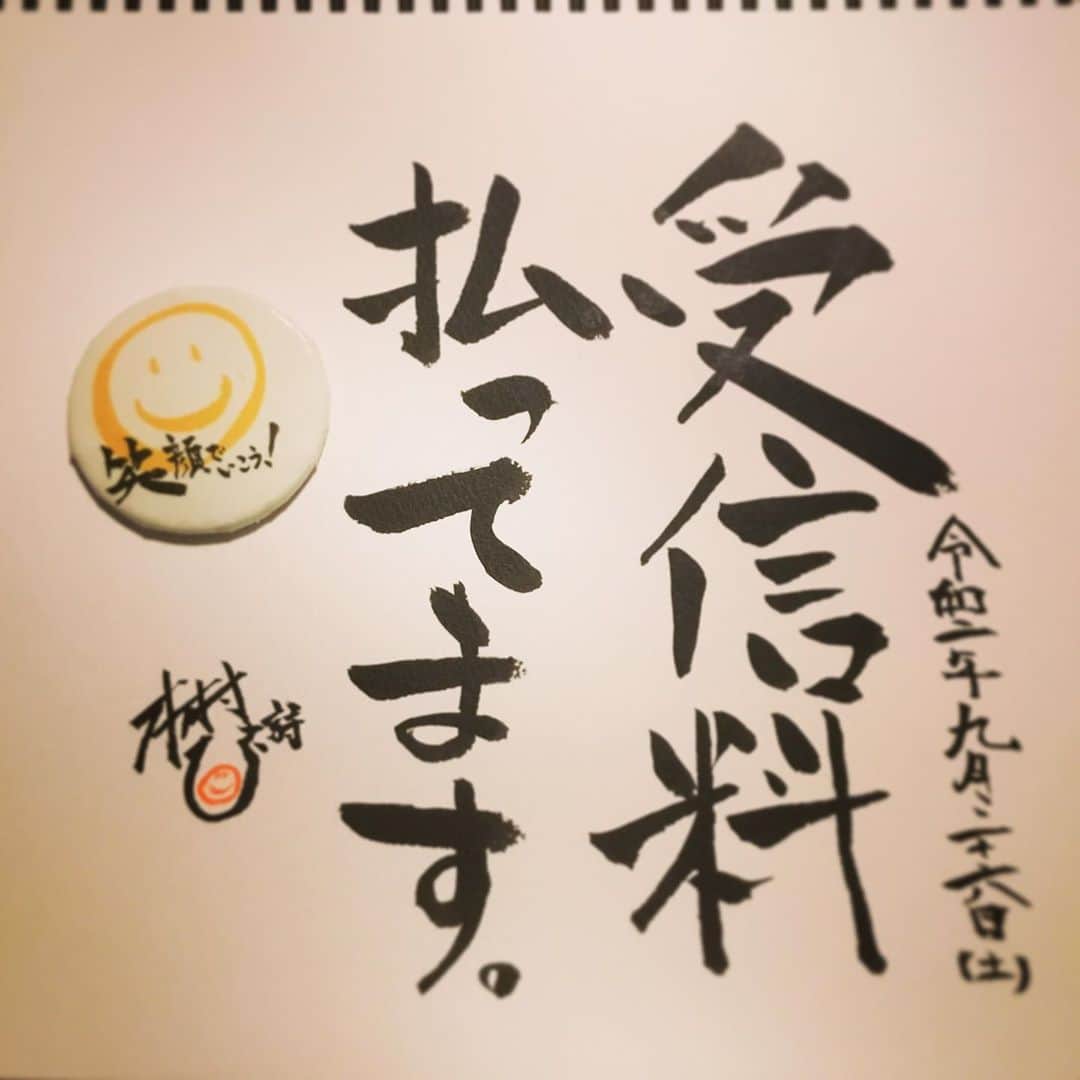 令和二年九月二十六日(土)
受信料
払ってます。
笑顔でいこう!